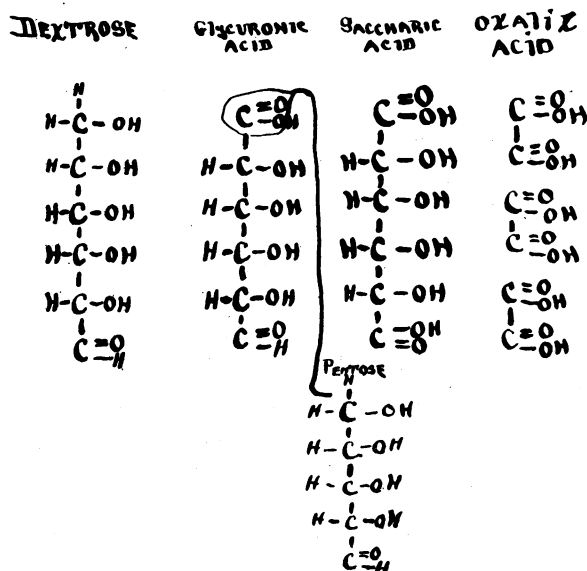 DEXTROSE
H
H-C-OH
H-C-OH
H-C-OH
H-C-OH
H-C-OH
C=O
-H
GLYCURONIC
ACID
C=O
-OH
H-C-OH
H-C-OH
H-C-OH
H-C-OH
C=O
-H
SACCHARIC
ACID
C=O
-OH
H-C-OH
H-C-OH
H-C-OH
H-C-OH
C-OH
=O
OXALiZ
ACiD
C=O
-OH
C=O
-OH
C=O
-OH
C=O
-OH
C=O
-OH
C=O
-OH
PENTOSE
H
H-C-OH
H-C-OH
H-C-OH
H-C-OH
C=O
-H